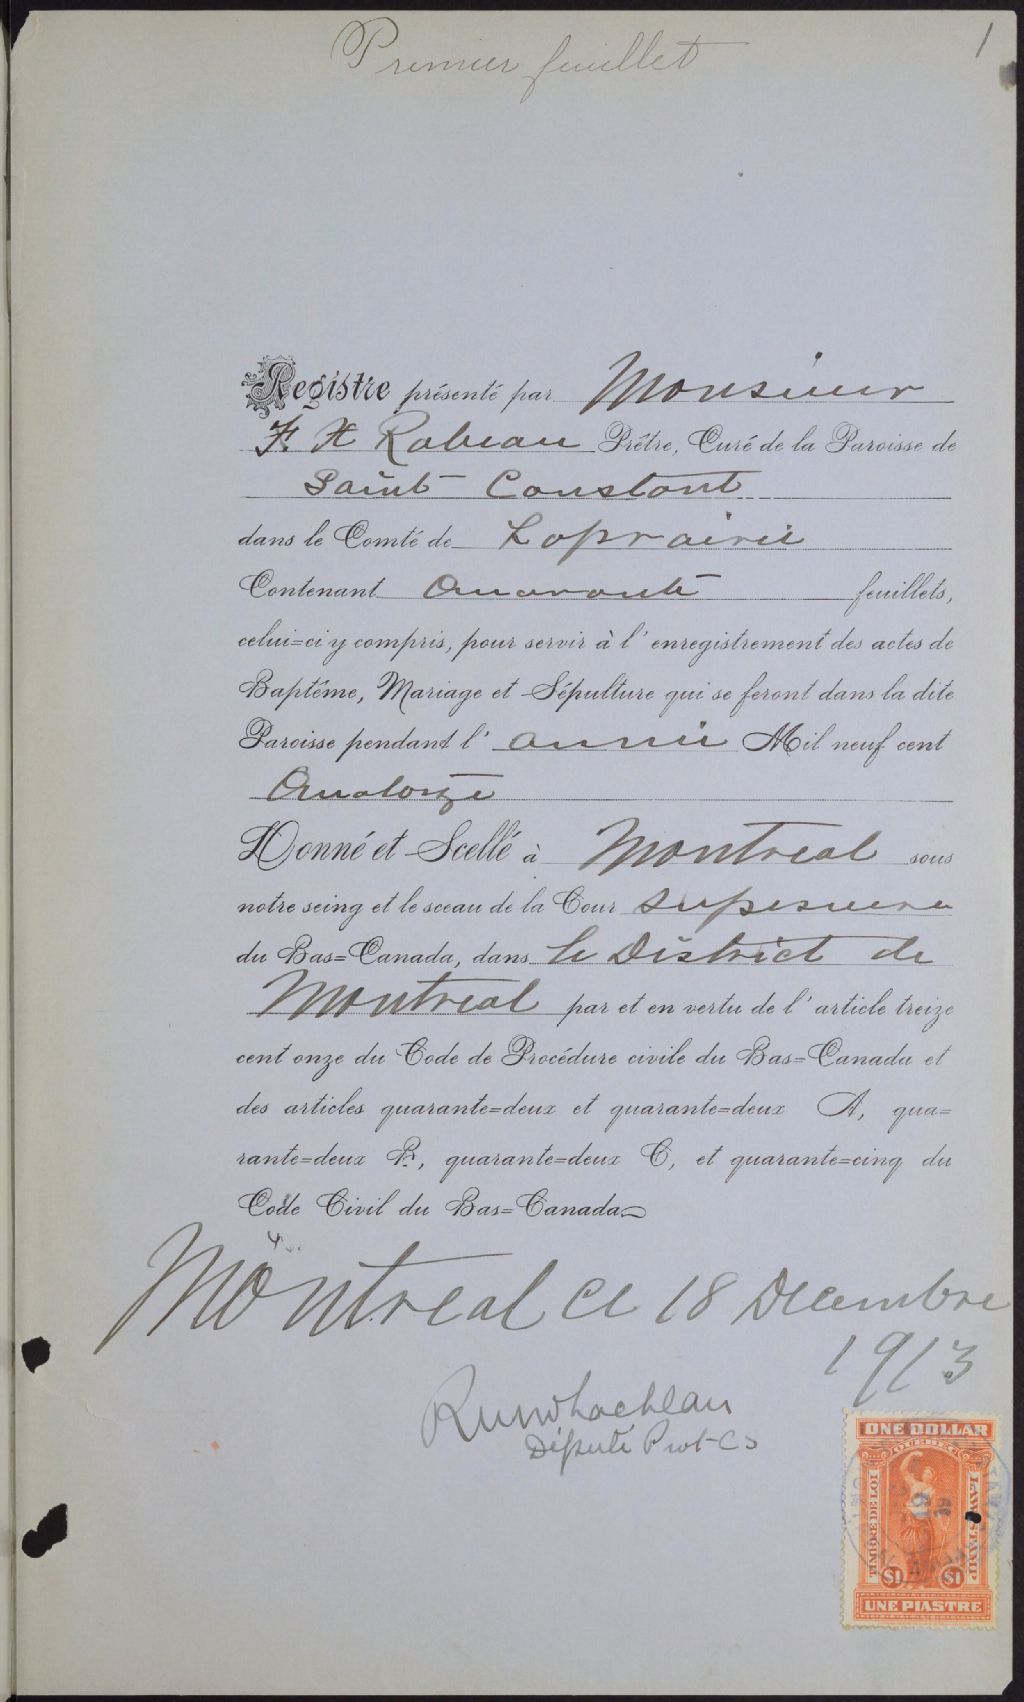 Premier feuillet
1
Registre présenté par Monsieur
F. X Rabeau Prêtre, Curé de la Paroisse de
Saint Constant
dans le Comté de Laprairie
Contenant Quarante feuillets,
celui=ci y compris, pour servir à l'enregistrement des actes de
Baptême, Mariage et Sépulture qui se feront dans la dite
Paroisse pendant l'année Mil neuf cent
Quatorze
Donné et Scellé à Montreal sous
notre seing et le sceau de la Cour superieure
du Bas=Canada, dans le District de
Montreal par et en vertu de l'article treize
cent onze du Code de Procédure civile du Bas=Canada et
des articles quarante=deux et quarante=deux A, qua=
rante=deux B, quarante=deux C, et quarante=cinq du
Code Civil du Bas=Canada
Montreal ce 18 Decembre
1913
Député Prot C S
ONE DOLLAR
QUEBEC
TIMBRE DE LOI
LAW STAMP
$1 $1
UNE PIASTRE